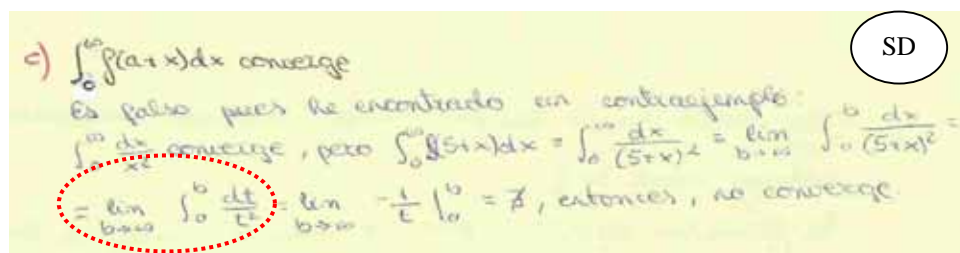 SD
c) ∫₀^∞ f(a+x)dx converge
Es falso pues he encontrado un contraejemplo:
∫₀^∞ dx/x² converge, pero ∫₀^∞ f(5+x)dx = ∫₀^∞ dx/(5+x)² = lim b→∞ ∫₀^b dx/(5+x)² =
= lim b→∞ ∫₀^b dt/t² = lim b→∞ -1/t |₀^b = ∄, entonces, no converge.